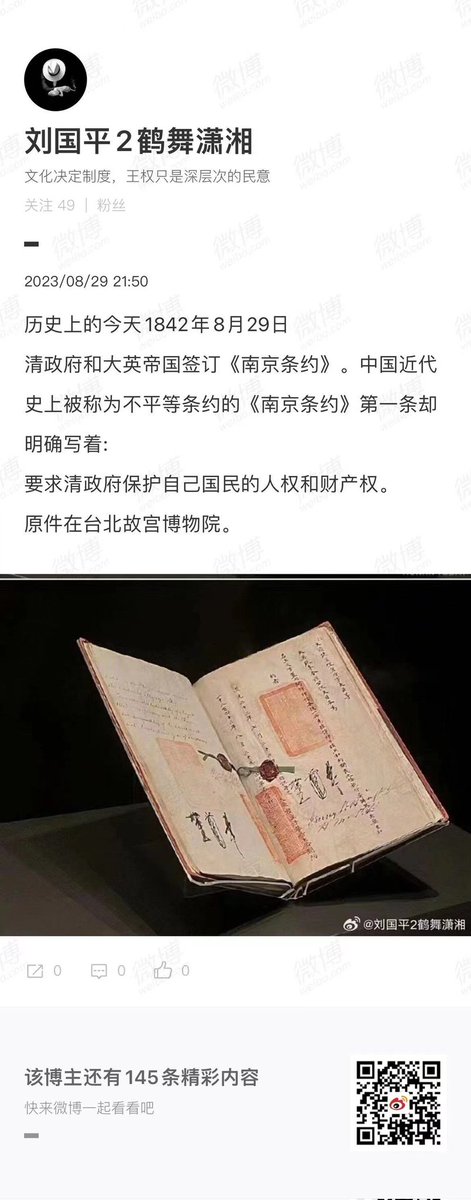 刘国平2鹤舞潇湘
文化决定制度，王权只是深层次的民意
关注 49 | 粉丝
2023/08/29 21:50
历史上的今天1842年8月29日
清政府和大英帝国签订《南京条约》。中国近代
史上被称为不平等条约的《南京条约》第一条却
明确写着:
要求清政府保护自己国民的人权和财产权。
原件在台北故宫博物院。
@刘国平2鹤舞潇湘
0
0
0
该博主还有145条精彩内容
快来微博一起看看吧
微博
weibo.com